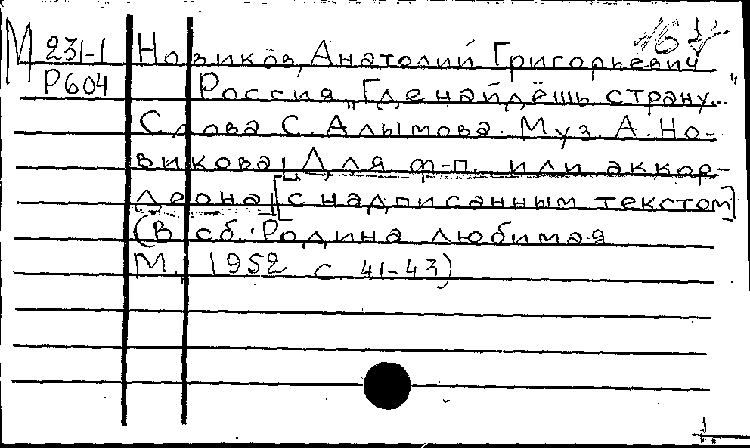 М 231-1 Новиков, Анатолий Григорьевич
Р604 Россия „Где найдёшь страну..."
Слова С. Алымова. Муз. А. Но-
викова, Для ф-п. или аккор-
деона [с надписанным текстом]
(В сб.: Родина любимая
М., 1952 с 41-43)